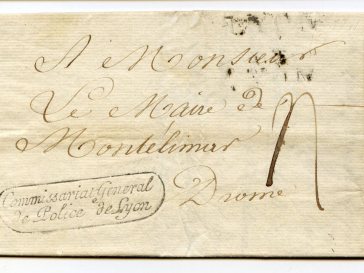 A Monsieur
Le Maire de
Montélimar
Drome
Commissariat Général
de Police de Lyon